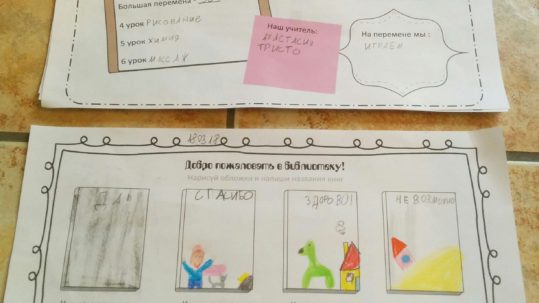 Большая перемена -
4 урок РИСОВАНИЕ
5 урок ХИМИЯ
6 урок МАССАЖ
Наш учитель:
АНАСТАСИЯ
ТРИСТО
На перемене мы :
ИГРАЕМ
18.03.18
Добро пожаловать в библиотеку!
Нарисуй обложки и напиши названия книг
СПАСИБО
ЗДОРОВО!
НЕВОЗМОЖНО